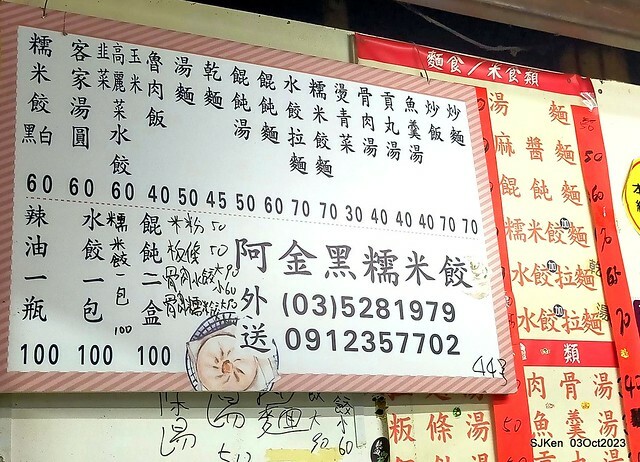 糯米餃黑白 60
客家湯圓 60
韭菜 高麗菜 玉米 水餃 60
魯肉飯 40
湯麵 50
乾麵 45
餛飩湯 50
餛飩麵 60
水餃拉麵 70
糯米餃麵 70
燙青菜 30
骨肉湯 40
貢丸湯 40
魚羹湯 40
炒飯 70
炒麵 70
辣油一瓶 100
水餃一包 100
糯米餃一包 100
餛飩二盒 100
米粉 50
板條 50
阿金黑糯米餃
外送
(03)5281979
0912357702
443
麵食/米食類
湯麵
麻醬麵 50
餛飩麵 60
糯米餃麵
水餃拉麵 乾
水餃拉麵 湯
類
肉骨湯
魚羹湯
板條湯 50
SJKen 03Oct2023